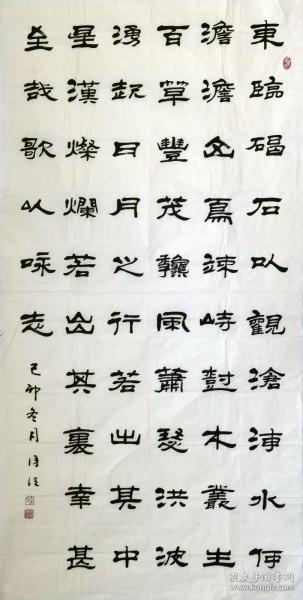 東臨碣石以觀滄海水何
澹澹山島竦峙樹木叢生
百草豐茂龝風蕭瑟洪波
湧起日月之行若出其中
星漢燦爛若出其裏幸甚
至哉歌以咏志
己卯冬月
孔夫子旧书网